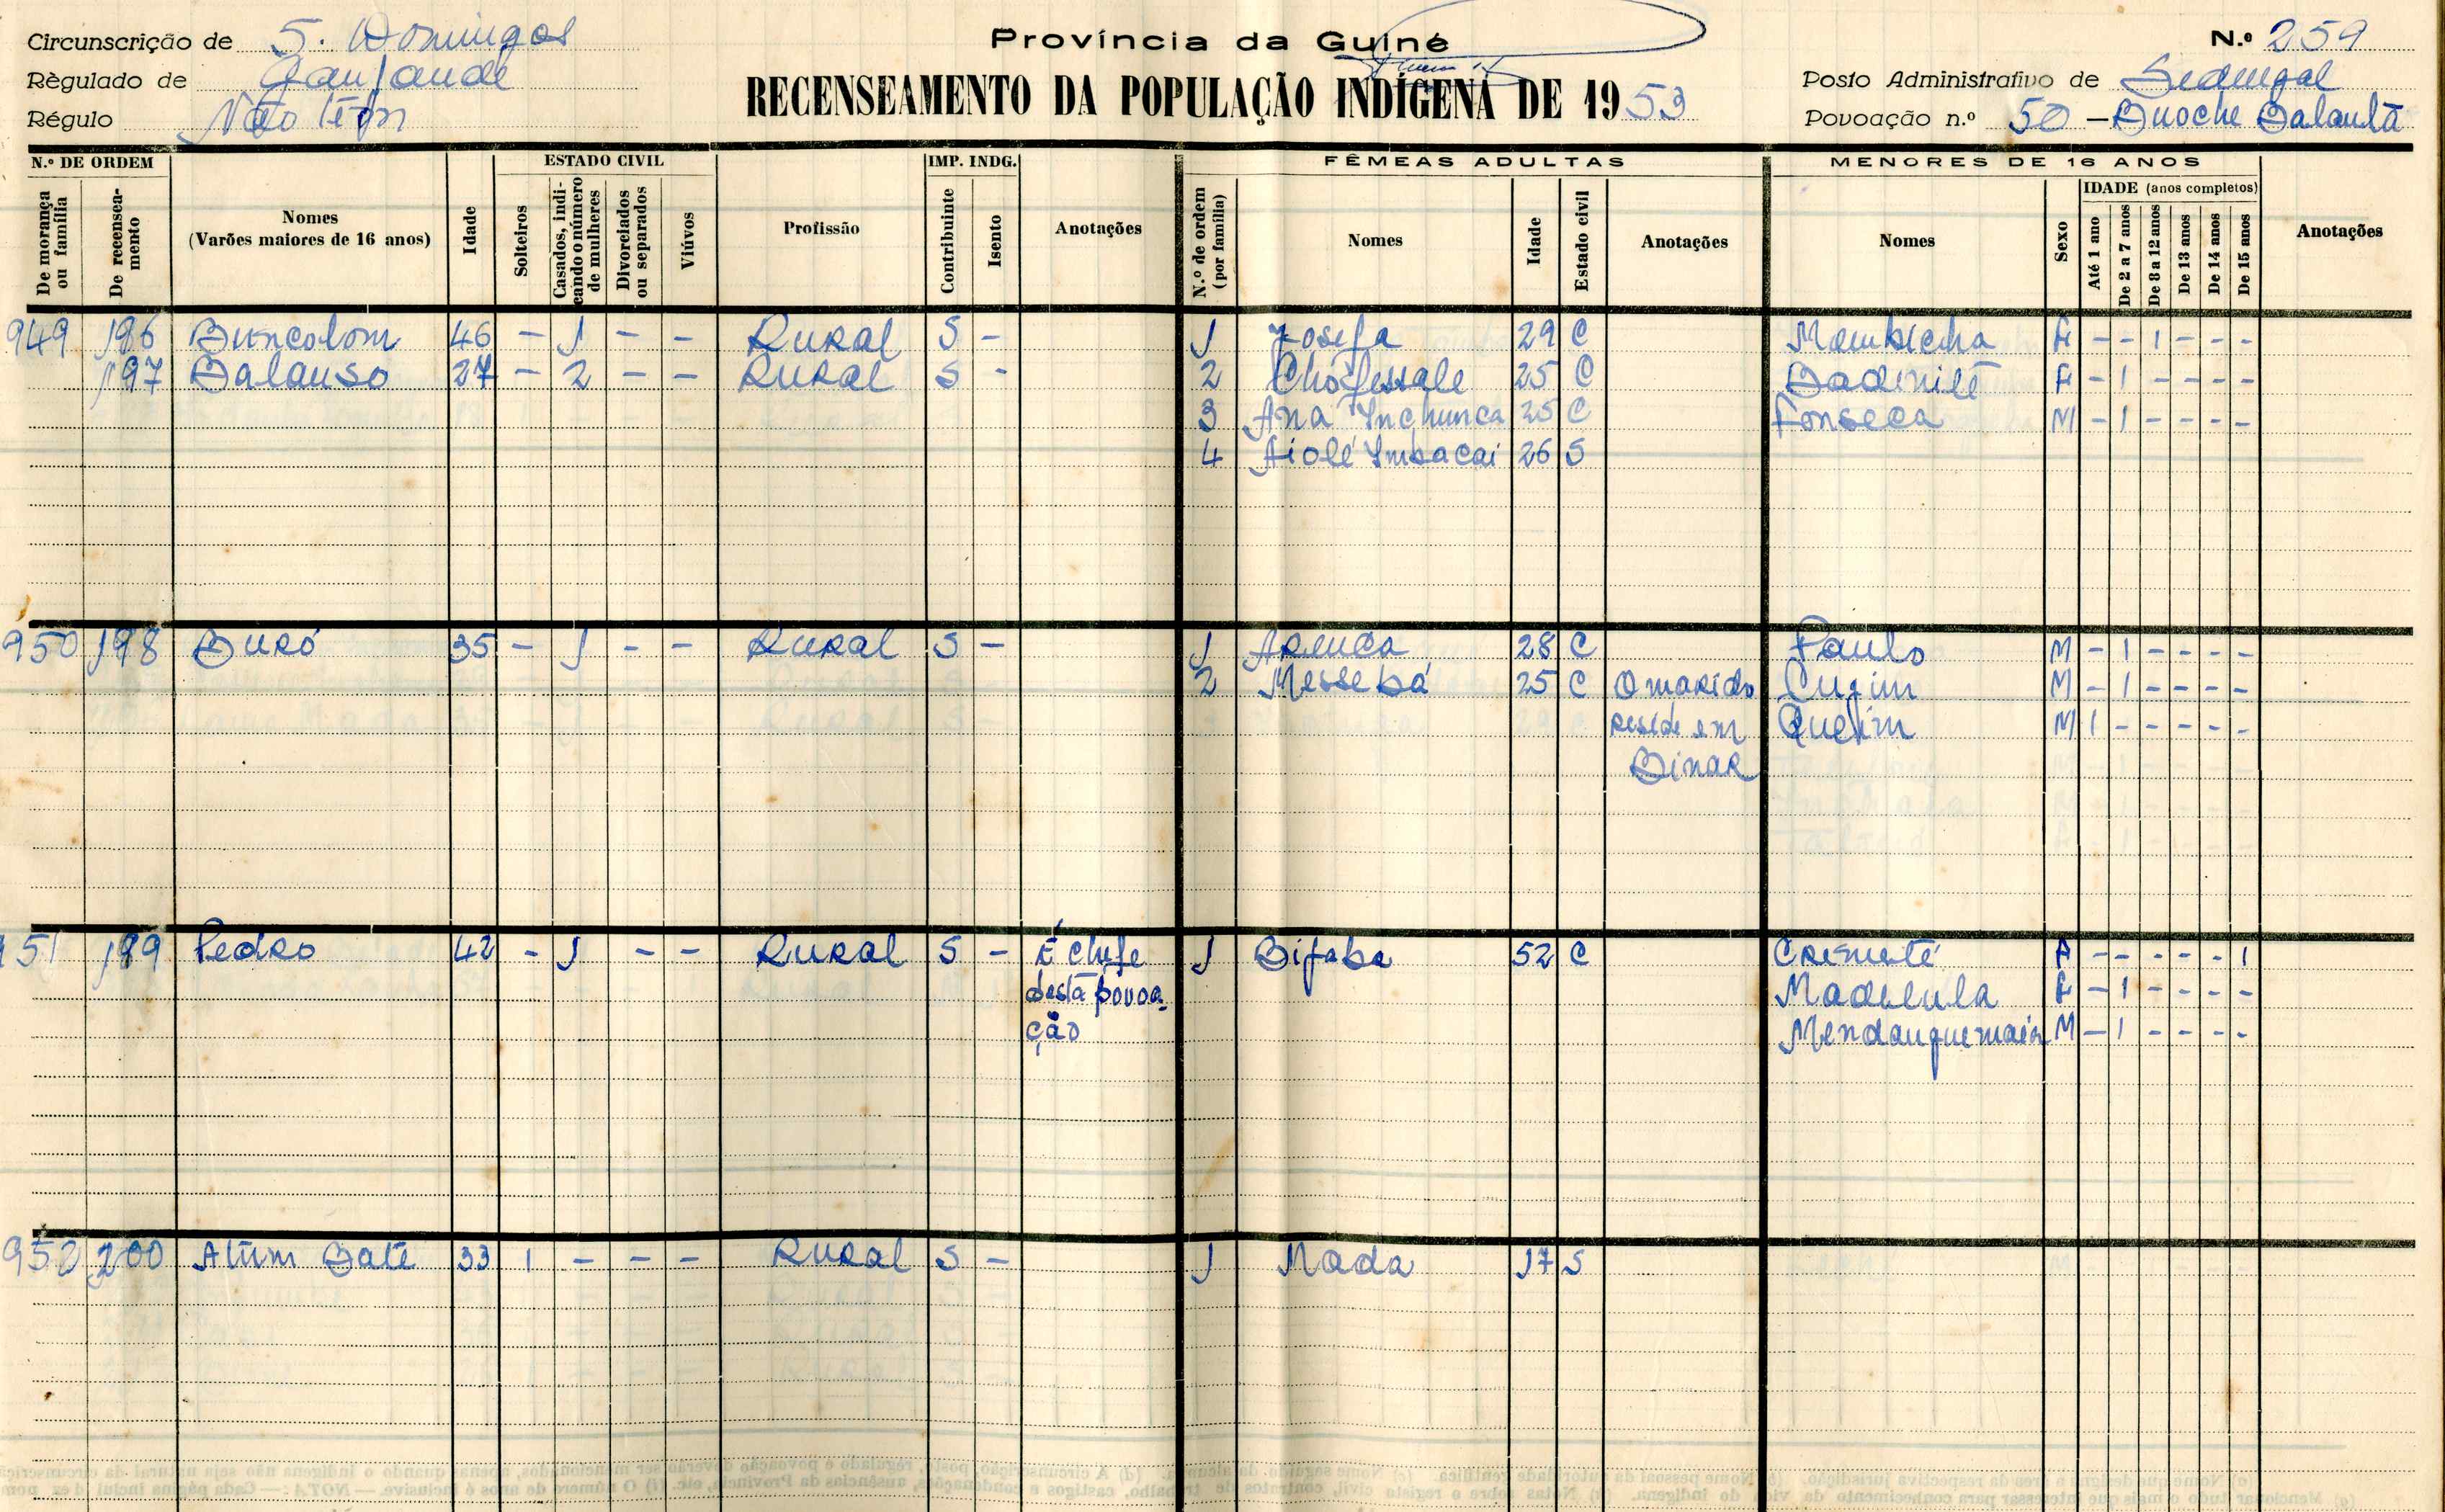 Circunscrição de S. Domingos
Província da Guiné
N.º 259
Règulado de
Posto Administrativo de Sedengal
RECENSEAMENTO DA POPULAÇÃO INDÍGENA DE 1953
Régulo Não tem
Povoação n.º 50 - Buoche Balanta
N.º DE ORDEM
ESTADO CIVIL
IMP. INDG.
FÊMEAS ADULTAS
MENORES DE 16 ANOS
De morança ou família
De recenseamento
Nomes
(Varões maiores de 16 anos)
Idade
Solteiros
Casados, indicando o número de mulheres
Divorciados ou separados
Viúvos
Profissão
Contribuinte
Isento
Anotações
N.º de ordem (por família)
Nomes
Idade
Estado civil
Anotações
Nomes
Sexo
IDADE (anos completos)
Até 1 ano
De 2 a 7 anos
De 8 a 12 anos
De 13 anos
De 14 anos
De 15 anos
Anotações
949 196 Buncolom 46 - 1 - - Rural S - 1 Josefa 29 C Mambicha F - - 1 - - -
197 Balanso 27 - 2 - - Rural S - 2 25 C Badinité F - 1 - - - -
3 Ana Inchunca 25 C Fonseca M - 1 - - - -
4 Aiolé Imbacai 26 S
950 198 Buró 35 - 1 - - Rural S - 1 Arenca 28 C Paulo M - 1 - - - -
2 Messebá 25 C O marido M - 1 - - - -
reside em M 1 - - - - -
Binar
951 199 Pedro 42 - 1 - - Rural S - É chefe 1 Bifaba 52 C Crimeté F - - - - - 1
desta povoa- Madulula F - 1 - - - -
ção Mendanquemain M - 1 - - - -
952 200 Atum Baté 33 1 - - - Rural S - 1 Nada 17 S